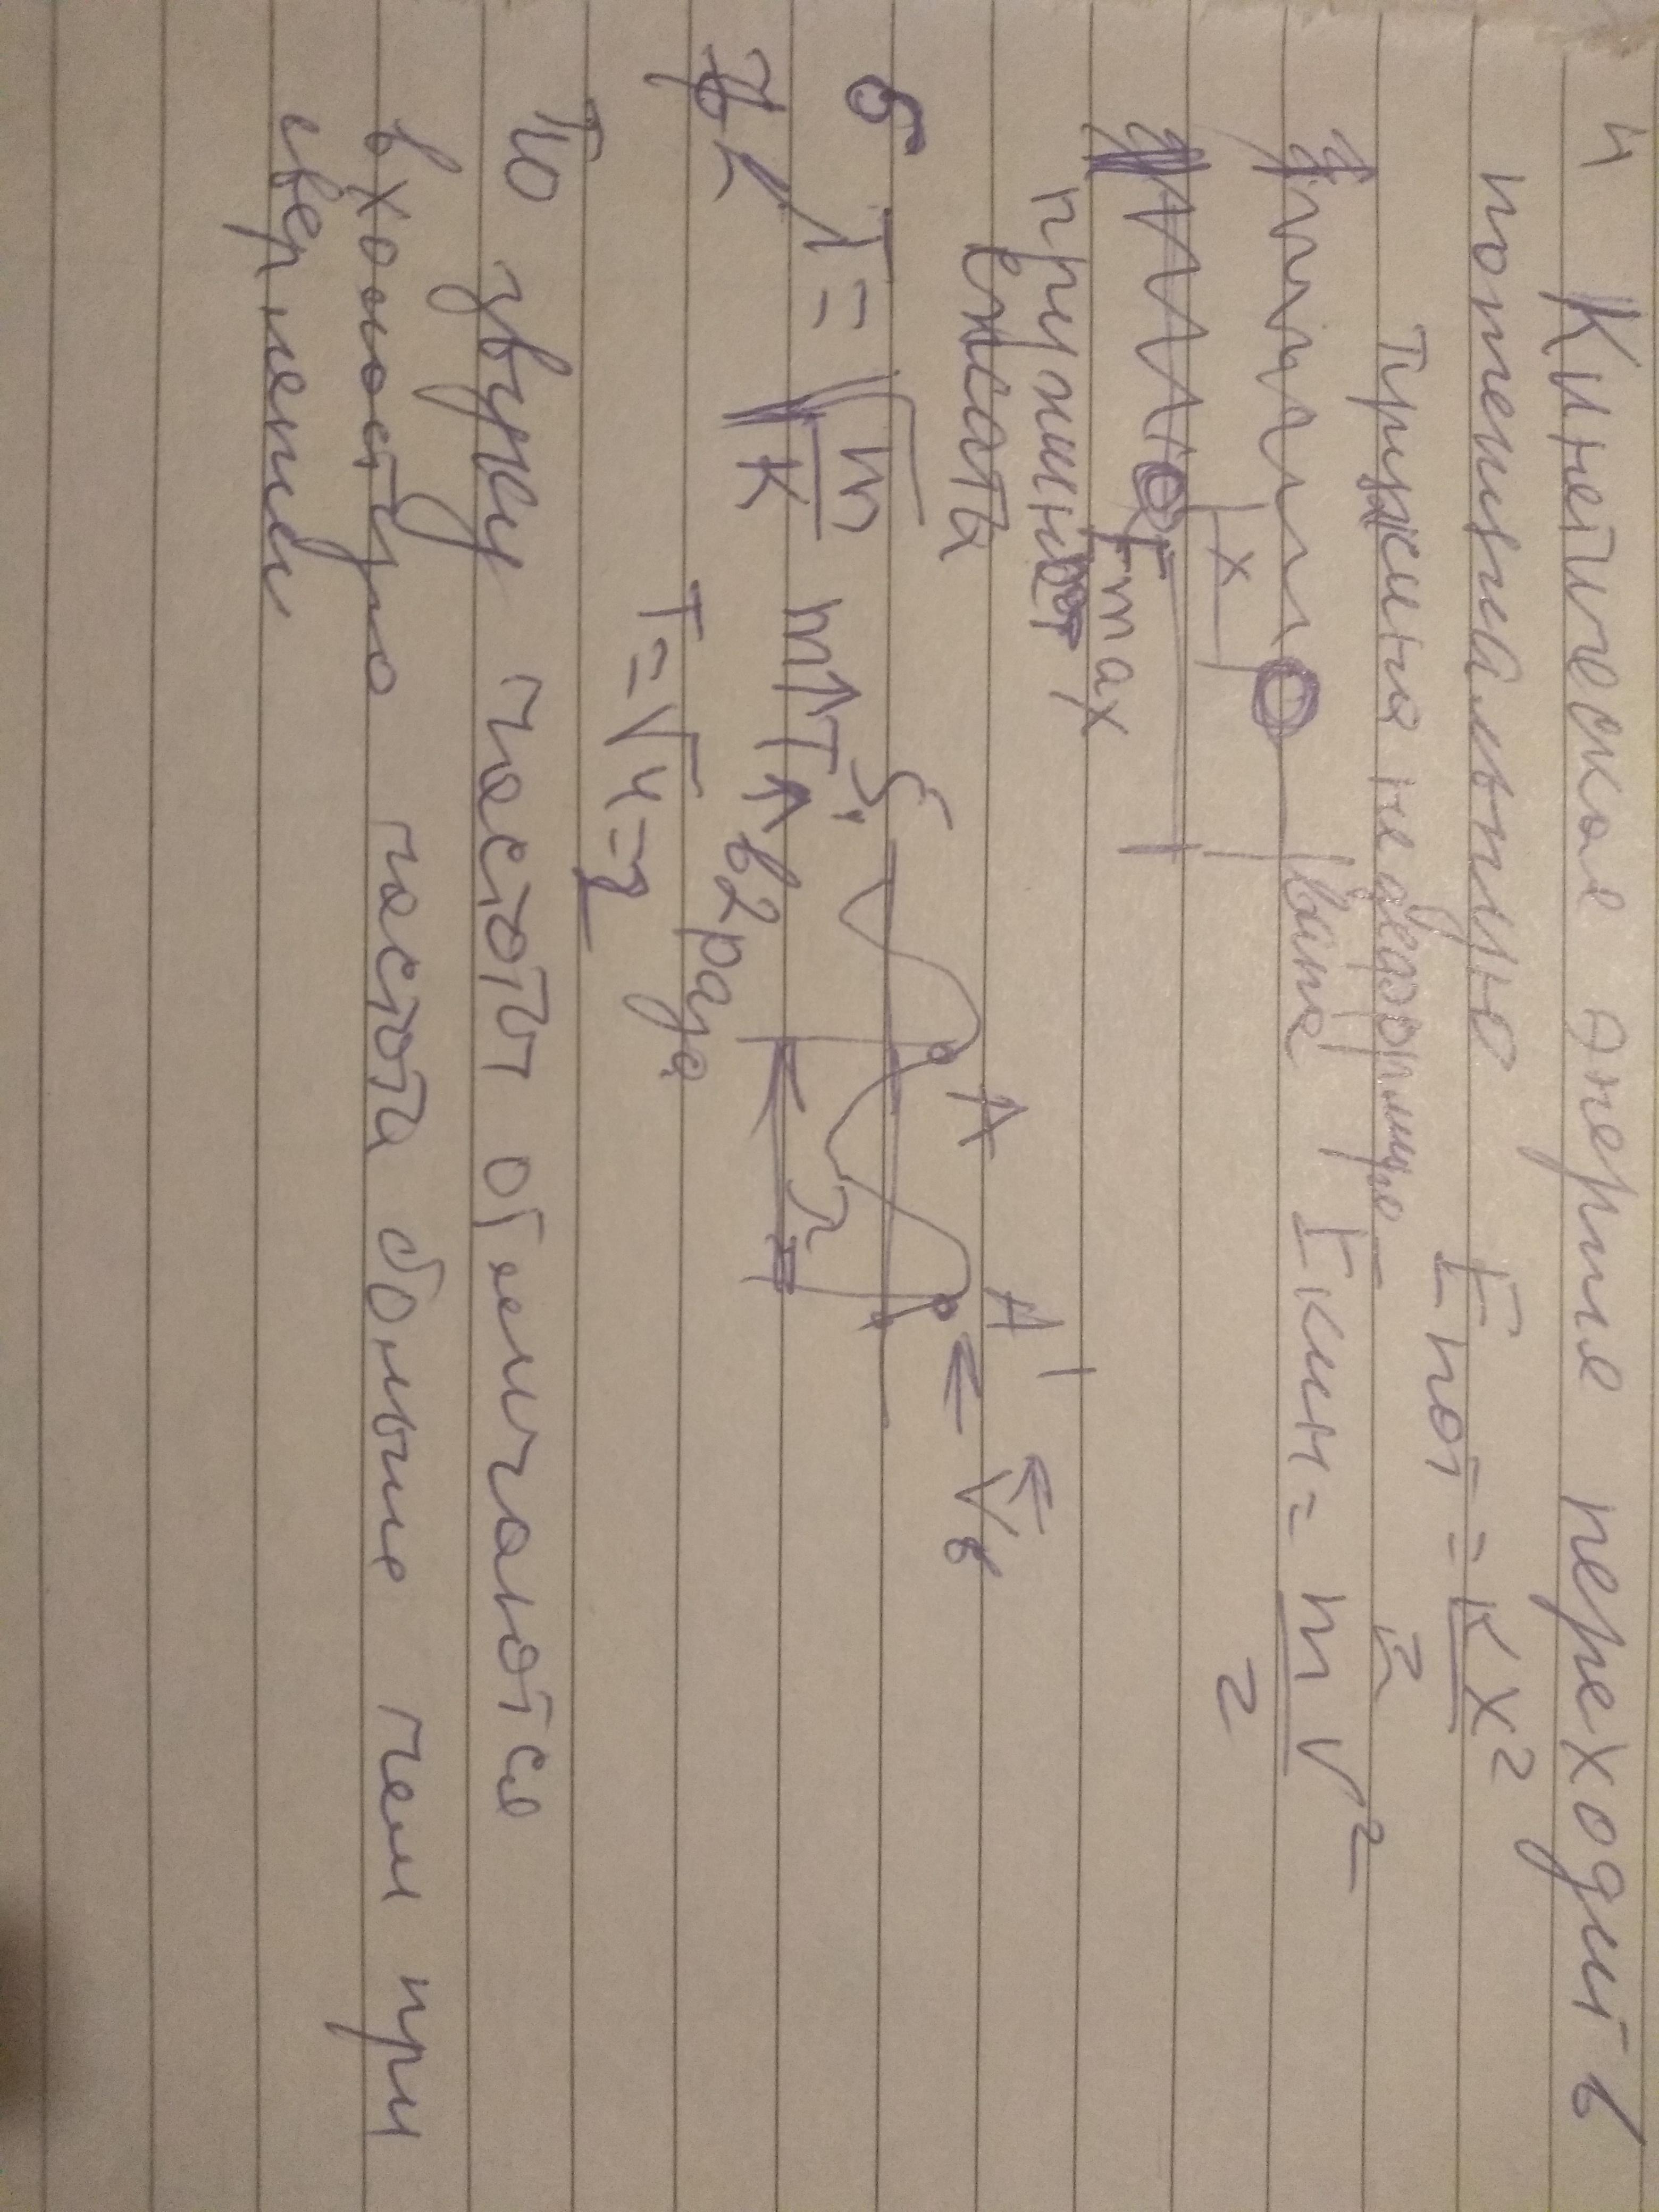 4 Кинетическая энергия переходит в
потенциальную Eпот = kx²
2
Пружина не деформиро
вана Eкин = mv²
2
x
Fmax
пружинной
сжаты
A A' Vв
б T = √m
k
S,
m↑T↑ в 2 раза
λ
T = √4 = 2
По звуку частоты отличаются
в холостую частота больше чем при
сверлении